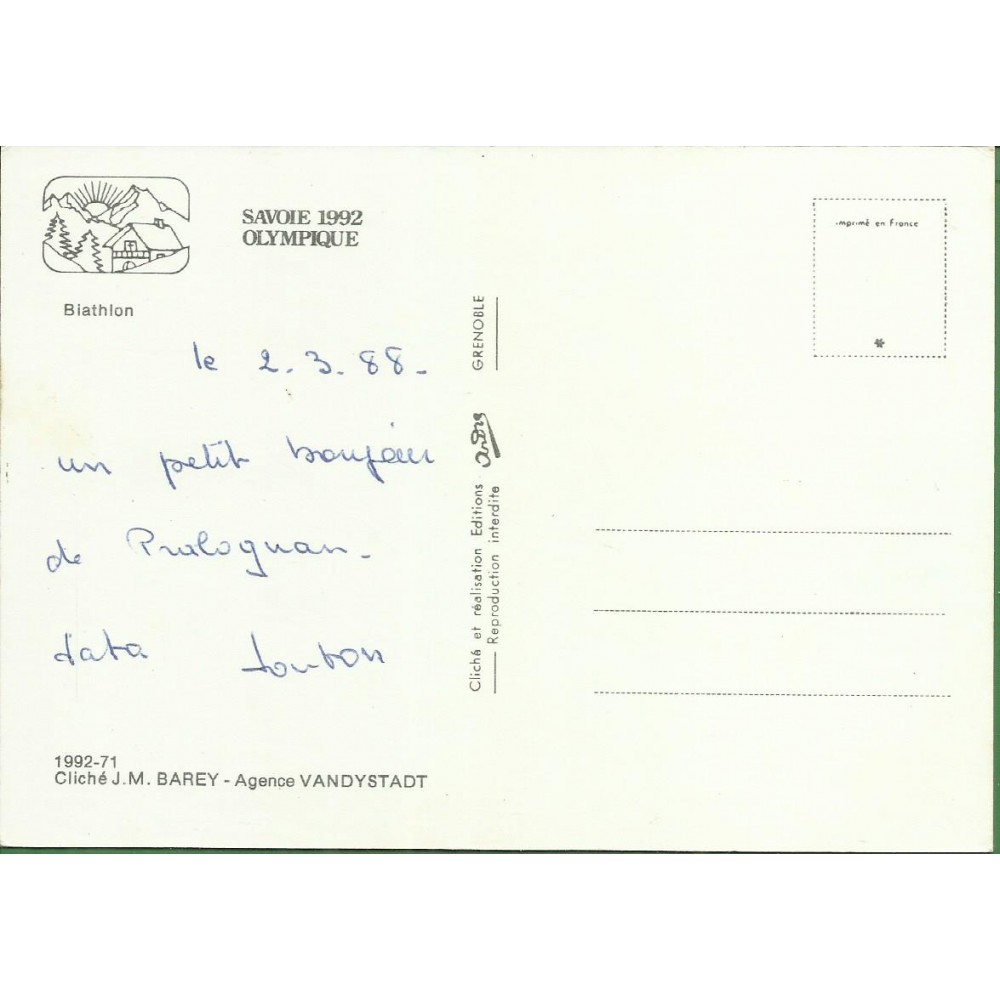 SAVOIE 1992
OLYMPIQUE
Biathlon
le 2.3.88-
un petit bonjour
de Pralognan-
tata tonton
1992-71
Cliché J.M. BAREY - Agence VANDYSTADT
Cliché et réalisation Editions andre GRENOBLE
Reproduction interdite
imprimé en France
*